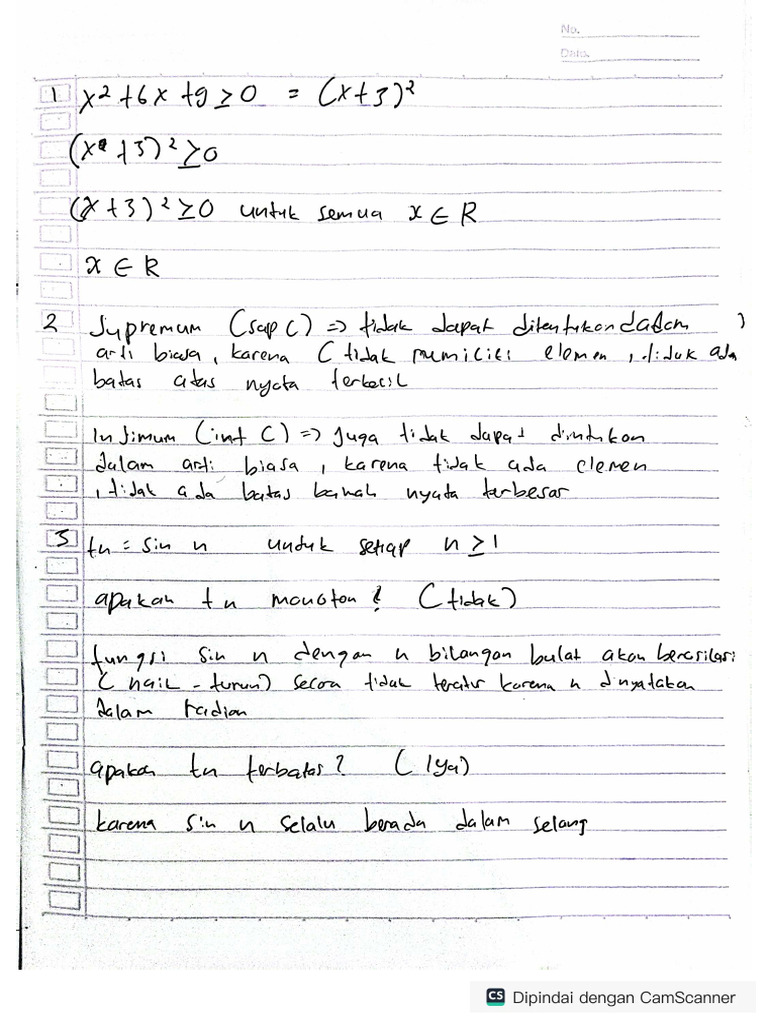 No.
Date.
1 x² + 6x + 9 ≥ 0 = (x+3)²
(x + 3)² ≥ 0
(x + 3)² ≥ 0 untuk semua x ∈ R
x ∈ R
2 Supremum (sup C) => tidak dapat ditentukan dalam
arti biasa, karena C tidak memiliki elemen, tidak ada
batas atas nyata terkecil
Infimum (inf C) => Juga tidak dapat ditentukan
dalam arti biasa, karena tidak ada elemen
, tidak ada batas bawah nyata terbesar
3 tn = sin n untuk setiap n ≥ 1
apakah tn monoton? (tidak)
fungsi sin n dengan n bilangan bulat akan berosilasi
(naik - turun) secara tidak teratur karena n dinyatakan
dalam radian
apakah tn terbatas? (Iya)
karena sin n selalu berada dalam selang
CS Dipindai dengan CamScanner